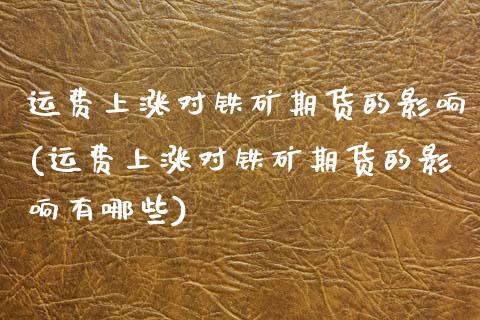 运费上涨对铁矿期货的影响
(运费上涨对铁矿期货的影
响有哪些)